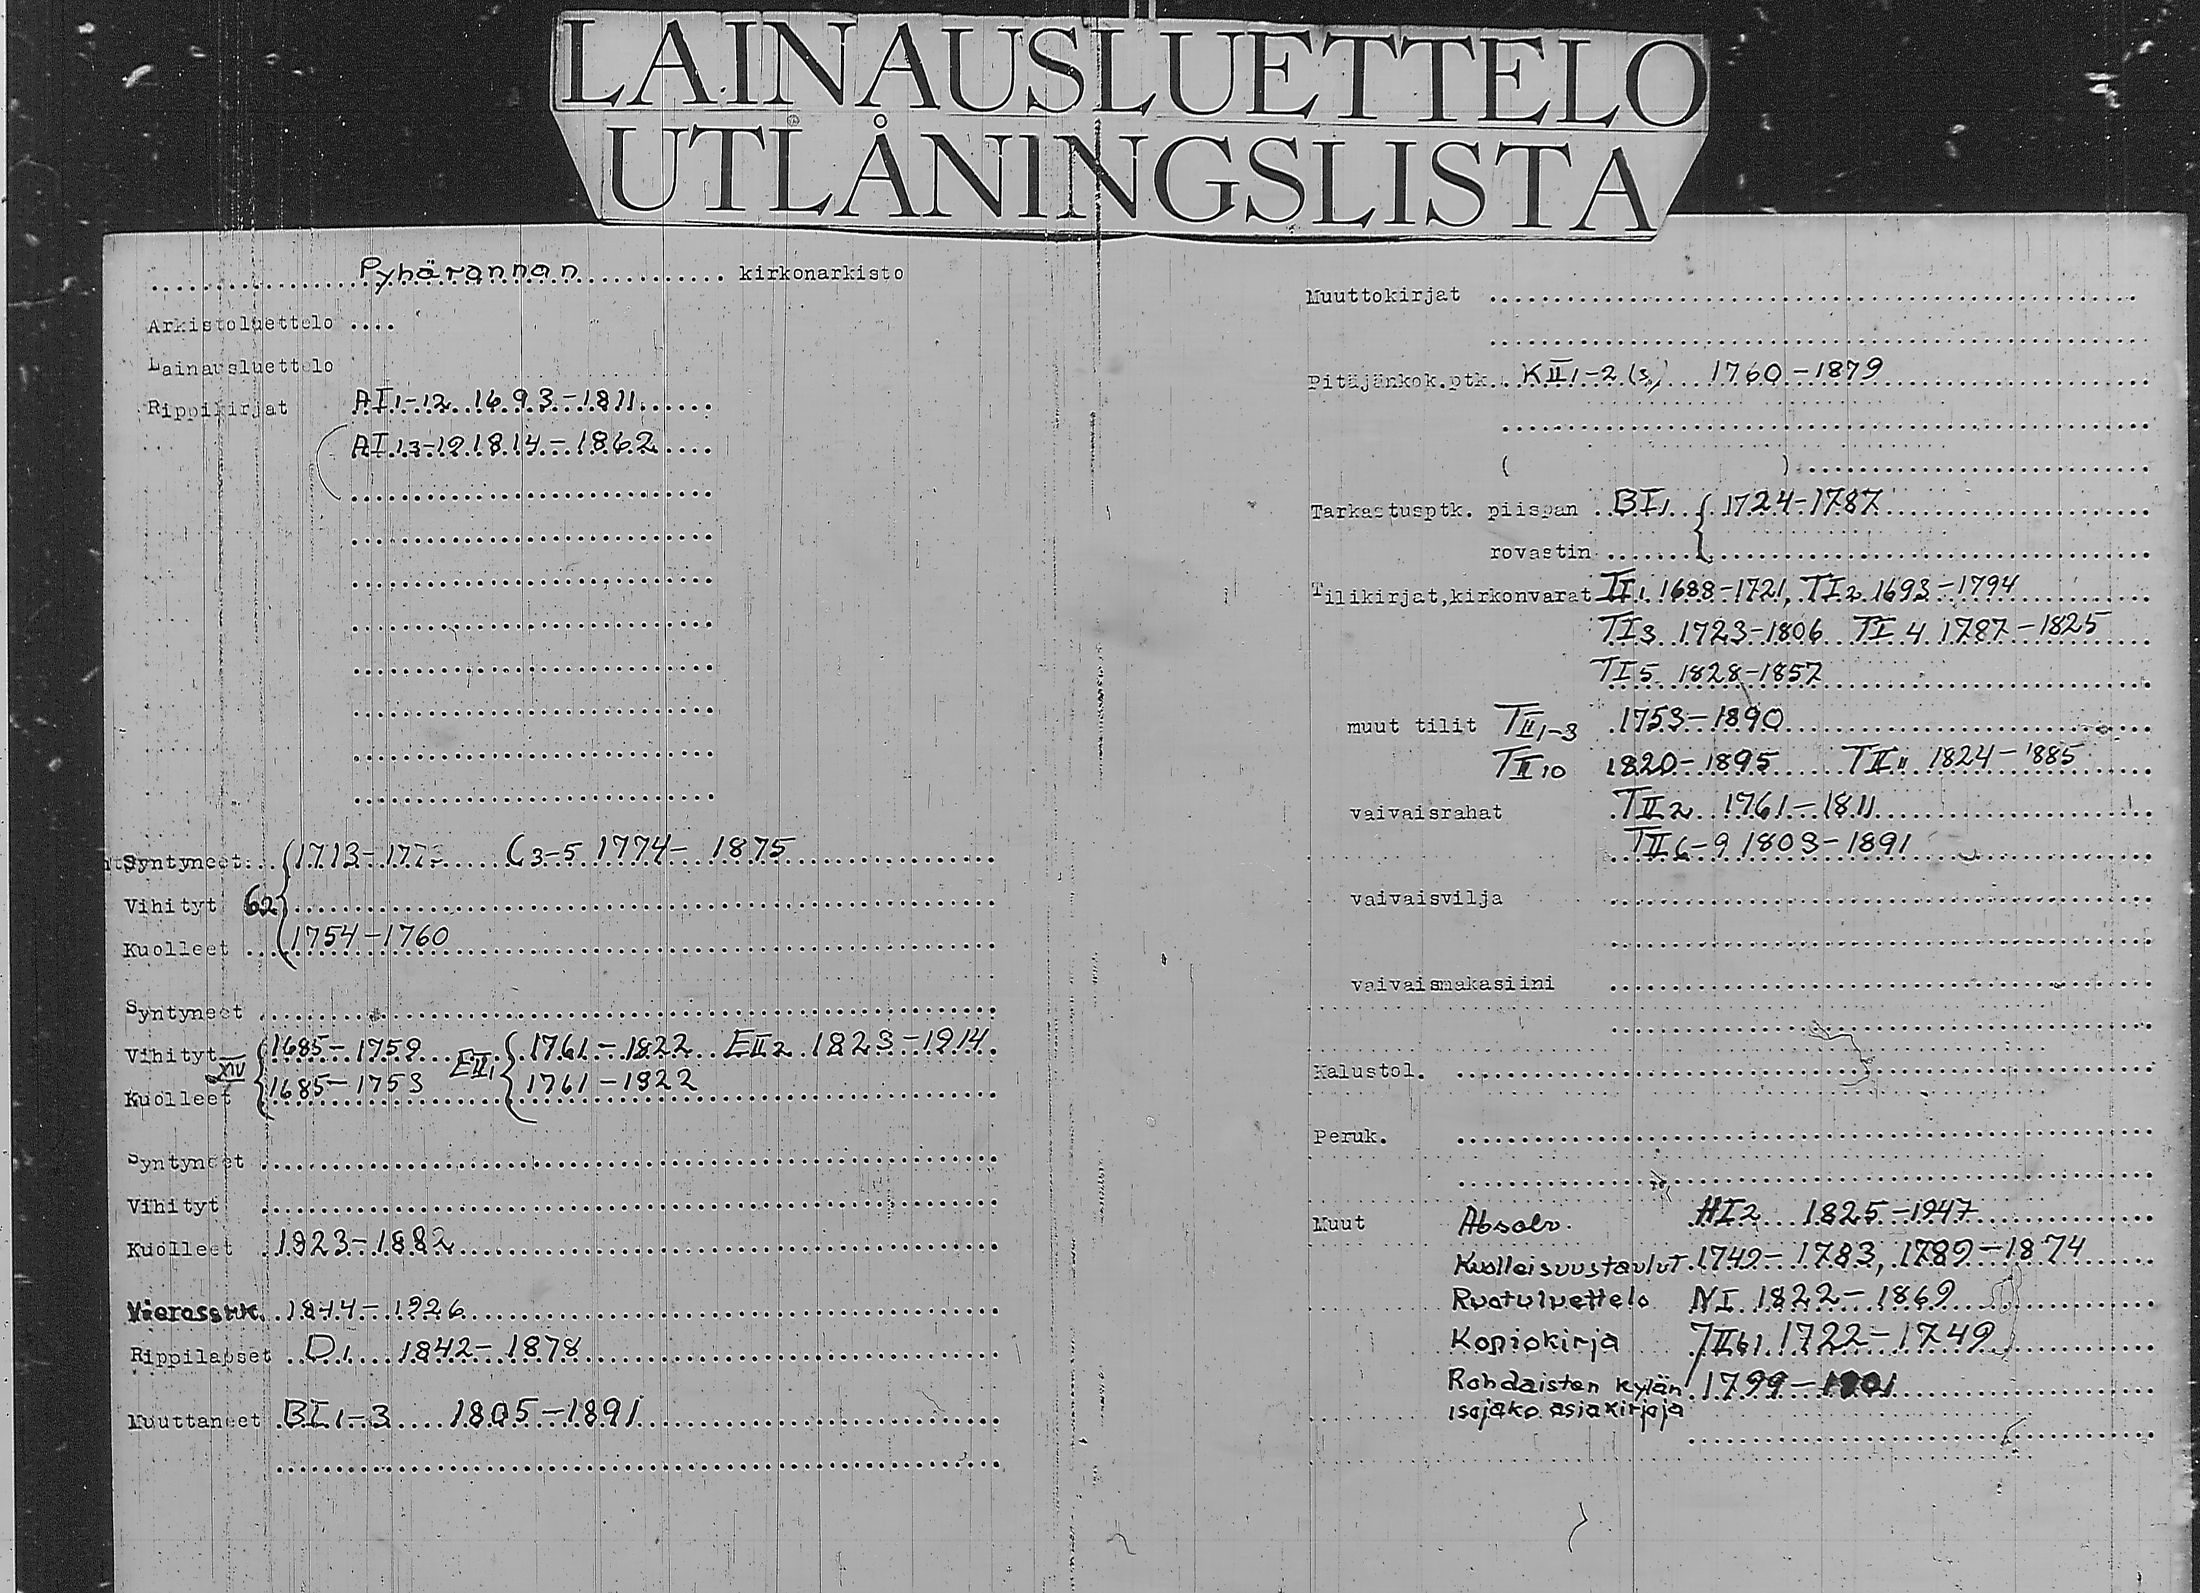 LAINAUSLUETTELO
UTLÅNINGSLISTA
Pyhärannan kirkonarkisto
Arkistoluettelo ....
Lainausluettelo
Rippikirjat AI 1-12 1693-1811
AI 13-19 1814-1862
Syntyneet 1713-177 C3-5 1774-1875
Vihityt
Kuolleet 1754-1760
Syntyneet
Vihityt 1685-1759 EII1 1761-1822 EII2 1823-1914
XIV
Kuolleet 1685-1753 1761-1822
Syntyneet
Vihityt
Kuolleet 1823-1882
1844-1926
Rippilapset D1 1842-1878
Muuttaneet BI 1-3 1805-1891
Muuttokirjat
Pitäjänkok.ptk. KII 1-2 (s) 1760-1879
( )
Tarkastusptk. piispan BI1 { 1724-1787
rovastin
Tilikirjat,kirkonvarat TI1 1688-1721, TI2 1693-1794
TI3 1723-1806 TI4 1787-1825
TI5 1828-1857
muut tilit TII1-3 1753-1890
TII10 1820-1895 TII11 1824-1885
vaivaisrahat TII2 1761-1811
TII6-9 1803-1891
vaivaisvilja
vaivaismakasiini
Kalustol.
Peruk.
Muut Absolv. HI2 1825-1947
Kuolleisuustaulut 1749-1783, 1789-1874
Ruotuluettelo NI 1822-1869
Kopiokirja 1722-1749
Rohdaisten kylän 1799-
isojako asiakirjoja